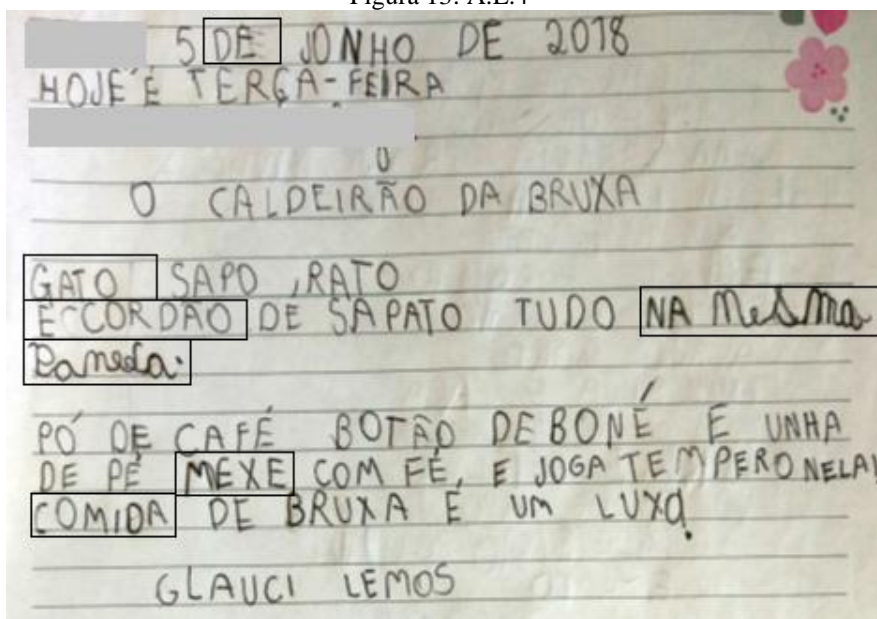 Figura 13: A.E.4
5 DE JONHO DE 2018
HOJE É TERÇA-FEIRA
O CALDEIRÃO DA BRUXA
GATO SAPO , RATO
E CORDÃO DE SAPATO TUDO NA mesma
Panela.
PÓ DE CAFÉ BOTÃO DE BONÉ E UNHA
DE PÉ MEXE COM FÉ, E JOGA TEMPERO NELA!
COMIDA DE BRUXA É UM LUXO!
GLAUCI LEMOS